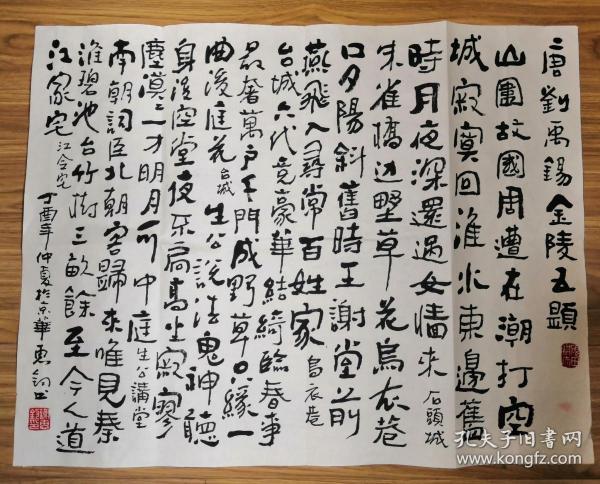 唐劉禹錫金陵五題
山圍故國周遭在潮打空
城寂寞回淮水東邊舊
時月夜深還過女墻来 石頭城
朱雀橋边野草花烏衣巷
口夕陽斜舊時王謝堂前
燕飛入尋常百姓家 烏衣巷
台城六代竟豪華結綺臨春事
最奢萬户千門成野草只緣一
曲後庭花 台城 生公說法鬼神聽
身後空堂夜不扃高坐寂寥
塵漠漠一方明月可中庭 生公講堂
南朝詞臣北朝客歸来唯見秦
淮碧池台竹樹三畝餘至今人道
江家宅 江令宅 丁酉年仲夏於京華
孔夫子旧书网
www.kongfz.com